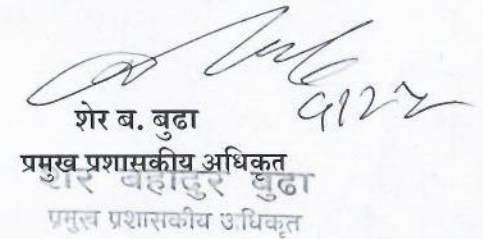 शेर ब. बुढा
प्रमुख प्रशासकीय अधिकृत
शेर बहादुर बुढा
प्रमुख प्रशासकीय अधिकृत